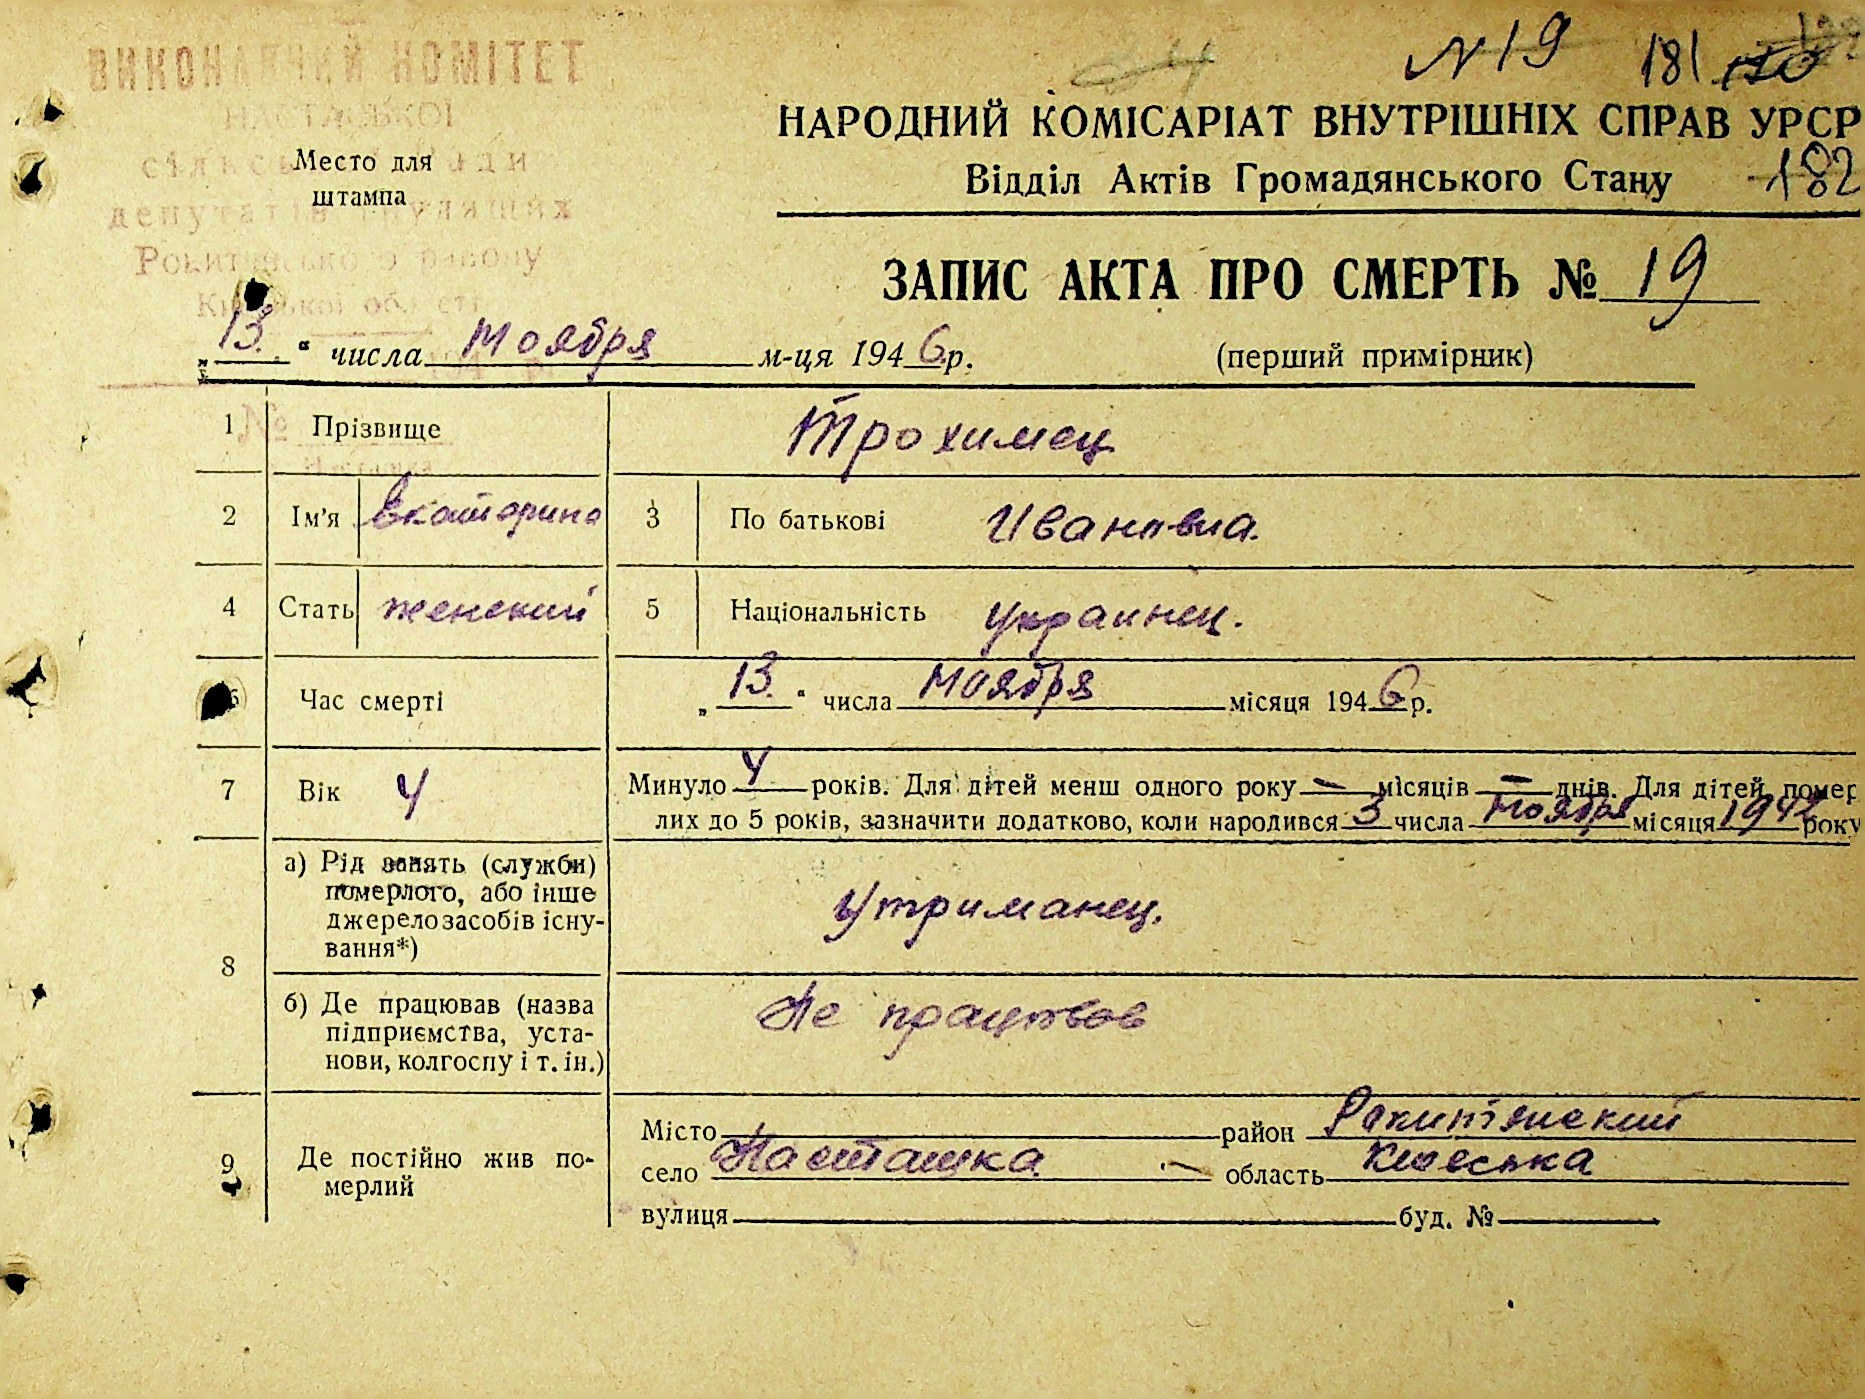 № 19 181
ВИКОНАВЧИЙ КОМІТЕТ
НАСТАСЬКОЇ
сільської Ради
депутатів трудящих
Рокитнянського району
Київської області
Место для
штампа
НАРОДНИЙ КОМІСАРІАТ ВНУТРІШНІХ СПРАВ УРСР
Відділ Актів Громадянського Стану 182
ЗАПИС АКТА ПРО СМЕРТЬ № 19
„13.“ числа Ноября м-ця 1946 р. (перший примірник)
1 Прізвище Трохимец
2 Ім'я Екатерина 3 По батькові Ивановна.
4 Стать женский 5 Національність украинец.
6 Час смерті „13.“ числа Ноября місяця 1946 р.
7 Вік 4 Минуло 4 років. Для дітей менш одного року — місяців — днів. Для дітей помер
лих до 5 років, зазначити додатково, коли народився 3 числа Ноября місяця 1942 року
8 а) Рід занять (служби)
померлого, або інше
джерело засобів існу-
вання*) Утриманец.
б) Де працював (назва
підприємства, уста-
нови, колгоспу і т. ін.) Не працював
9 Де постійно жив по-
мерлий
Місто район Ракитянский
село Насташка область Киевська
вулиця буд. №